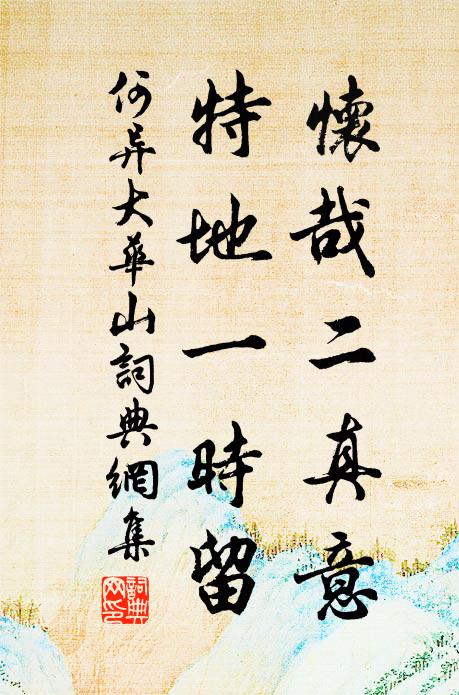 懷哉二真意
特地一時留
何异大華山詞典網集
詞典